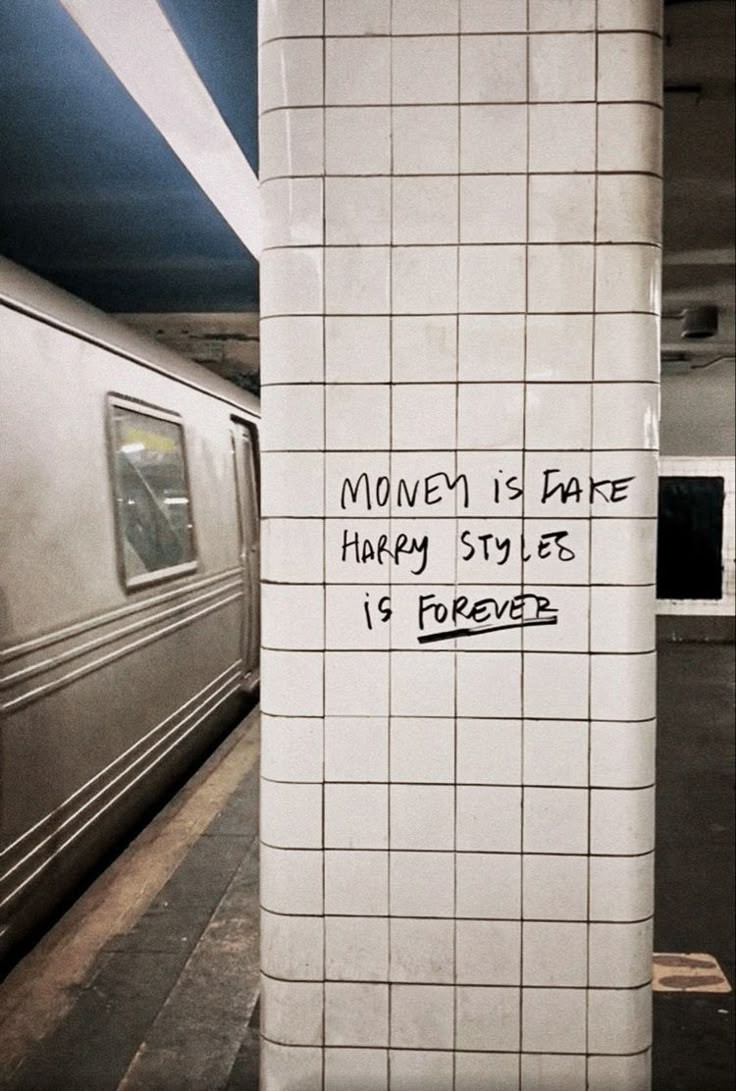 MONEY is FAKE
HARRY STYLES
is FOREVER